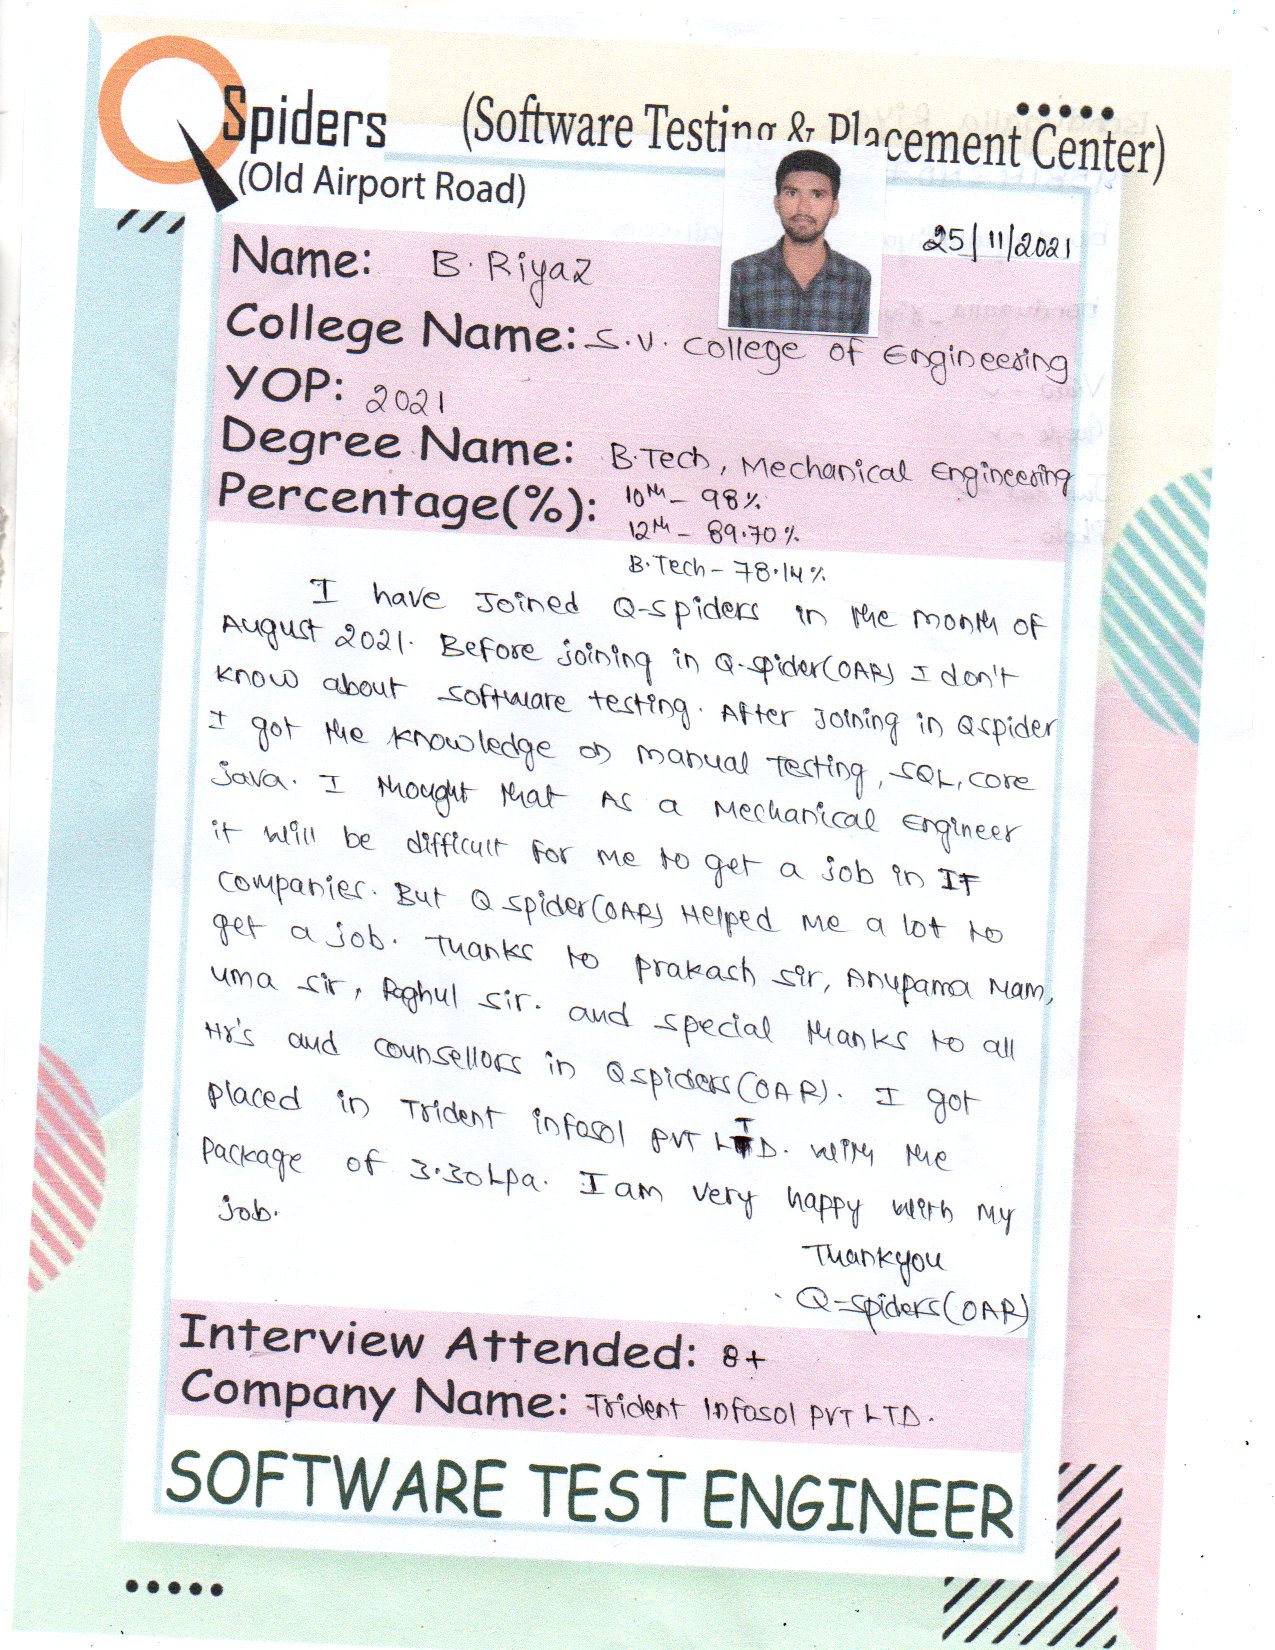 QSpiders (Software Testing & Placement Center)
(Old Airport Road)
25/11/2021
Name: B. Riyaz
College Name: S.V. College of Engineering
YOP: 2021
Degree Name: B.Tech, Mechanical Engineering
Percentage(%): 10th - 98%
12th - 89.70%
B.Tech - 78.14%
I have Joined Q-spiders in the month of
August 2021. Before joining in Q-spider(OAR) I don't
know about software testing. After Joining in Qspider
I got the knowledge on manual Testing, SQL, core
java. I thought that As a Mechanical Engineer
it will be difficult for me to get a job in IT
companies. But Q spider(OAR) Helped me a lot to
get a job. Thanks to prakash sir, Anupama Mam,
uma sir, Raghul sir. and special thanks to all
Hr's and counsellors in Qspiders(OAR). I got
placed in Trident infosol PVT LTD. with the
Package of 3.30Lpa. I am very happy with my
job.
Thankyou
Q-spiders(OAR)
Interview Attended: 8+
Company Name: Trident Infosol PVT LTD.
SOFTWARE TEST ENGINEER